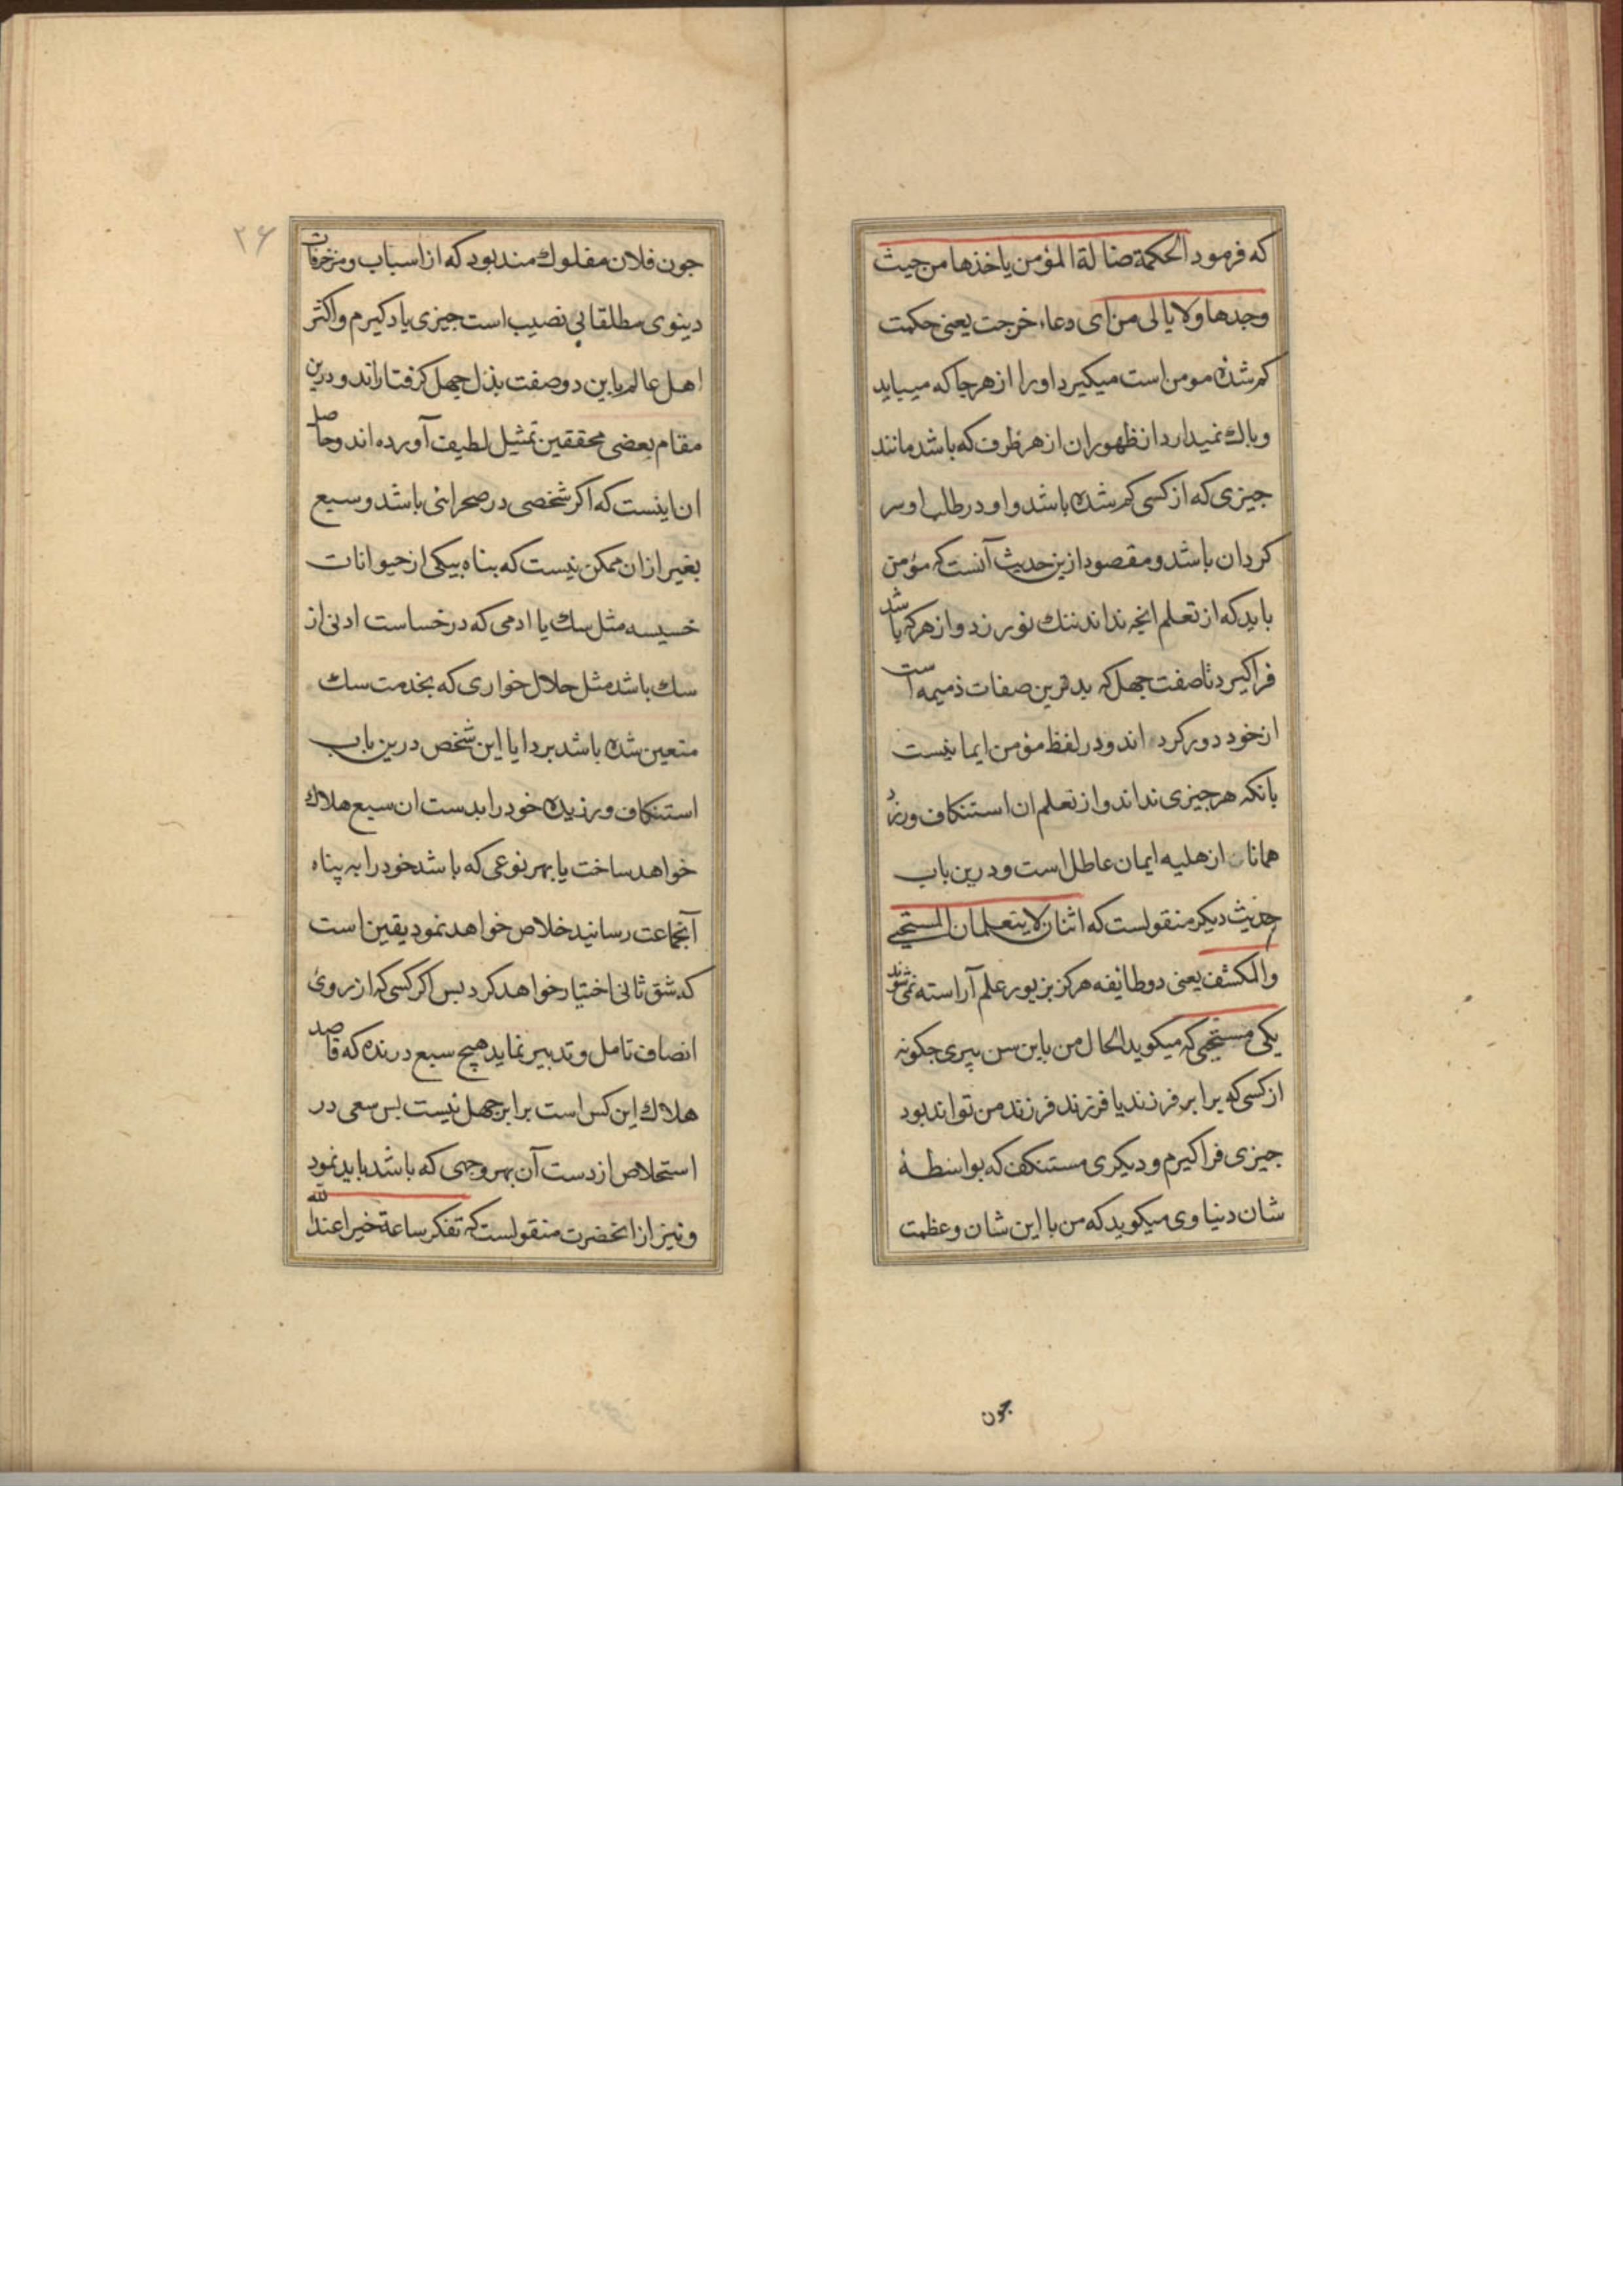 که فرمود الحکمة ضالة المؤمن یاخذها من حیث
وجدها ولا یالی من ای دعاء خرجت یعنی حکمت
کم شده مومن است میکیرد او را از هر جا که مییابد
و باک نمیدارد از ظهور ان از هر ظرف که باشد مانند
جیزی که از کسی کم شده باشد و او در طلب او سر
کردان باشد و مقصود ازین حدیث آنست که مؤمن
باید که از تعلم انچه نداند ننک نورزد و از هر که باشد
فرا کیرد تا صفت جهل که بدترین صفات ذمیمه است
از خود دور کرده اند و در لفظ مؤمن ایما نیست
بانکه هر جیزی نداند و از تعلم ان استنکاف ورزد
همانا از هلیه ایمان عاطل است و درین باب
حدیث دیکر منقولست که اثنان لا یتعلمان المستحی
والمکشف یعنی دو طائفه هرکز بزیور علم آراسته نمی شوند
یکی مستحیی که میکوید الحال من باین سن پیری جکونه
از کسی که برابر فرزند یا فرزند فرزند من تواند بود
جیزی فرا کیرم و دیکری مستنکف که بواسطهٔ
شان دنیاوی میکوید که من با این شان و عظمت
جون
۲۶
جون فلان مفلوک مند بود که از اسباب و مزخرفات
دینوی مطلقا بی نصیب است جیزی یاد کیرم و اکثر
اهل عالم باین دو صفت بذل جهل کرفتاراند و درین
مقام بعضی محققین تمثیل لطیف آورده اند و حاصل
ان اینست که اکر شخصی در صحرائی باشد و سبع
بغیر ازان ممکن نیست که بناه بیکی از حیوانات
خسیسه مثل سک یا ادمی که در خساست ادنی از
سک باشد مثل حلال خواری که بخدمت سک
متعین شده باشد برد ایا این شخص درین باب
استنکاف ورزیده خود را بدست ان سبع هلاک
خواهد ساخت یا بهر نوعی که باشد خود را به پناه
آنجماعت رسانید خلاص خواهد نمود یقین است
که شق ثانی اختیار خواهد کرد بس اکر کسی که از روی
انصاف تامل و تدبیر نماید هیچ سبع درنده که قاصد
هلاک این کس است برابر جهل نیست بس سعی در
استخلاص از دست آن بهر وجهی که باشد باید نمود
و نیز از انحضرت منقولست که تفکر ساعة خیرا عند الله